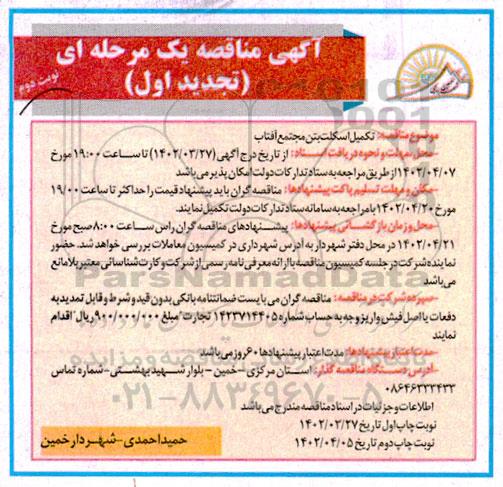 آگهی مناقصه یک مرحله ای
(تجدید اول)
نوبت دوم
موضوع مناقصه: تکمیل اسکلت بتن مجتمع آفتاب
-محل مهلت و نحوه دریافت اسناد: از تاریخ درج آگهی (۱۴۰۲/۰۳/۲۷) تا ساعت ۱۹:۰۰ مورخ
۱۴۰۲/۰۴/۰۷ از طریق مراجعه به ستاد تدارکات دولت امکان پذیر می باشد
-مکان و مهلت تسلیم پاکت پیشنهادها: مناقصه گران باید پیشنهاد قیمت را حداکثر تا ساعت ۱۹/۰۰
مورخ ۱۴۰۲/۰۴/۲۰ با مراجعه به سامانه ستاد تدارکات دولت تکمیل نمایند.
-محل و زمان بازگشائی پیشنهادها: پیشنهادهای مناقصه گران راس ساعت ۸:۰۰ صبح مورخ
۱۴۰۲/۰۴/۲۱ در محل دفتر شهردار به آدرس شهرداری در کمیسیون معاملات بررسی خواهد شد. حضور
نماینده شرکت در جلسه کمیسیون مناقصه با ارائه معرفی نامه رسمی از شرکت و کارت شناسائی معتبر بلامانع
می باشد
-سپرده شرکت در مناقصه: مناقصه گران می بایست ضمانتنامه بانکی بدون قید و شرط و قابل تمدید به
دفعات یا اصل فیش واریز وجه به حساب شماره ۱۴۲۳۷۱۴۴۰۵ تجارت "مبلغ ۹۰۰/۰۰۰/۰۰۰ ریال" اقدام
نمایند
-مدت اعتبار پیشنهادها: مدت اعتبار پیشنهادها ۶۰ روز می باشد
-آدرس دستگاه مناقصه گذار: استان مرکزی – خمین – بلوار شهید بهشتی – شماره تماس
۰۸۶۴۶۳۳۲۴۳۳
اطلاعات و جزئیات در اسناد مناقصه مندرج می باشد
نوبت چاپ اول تاریخ ۱۴۰۲/۰۳/۲۷
نوبت چاپ دوم تاریخ ۱۴۰۲/۰۴/۰۵
حمید احمدی – شهردار خمین
ParsNamadData
۰۲۱-۸۸۳۴۹۶۷۰-۵